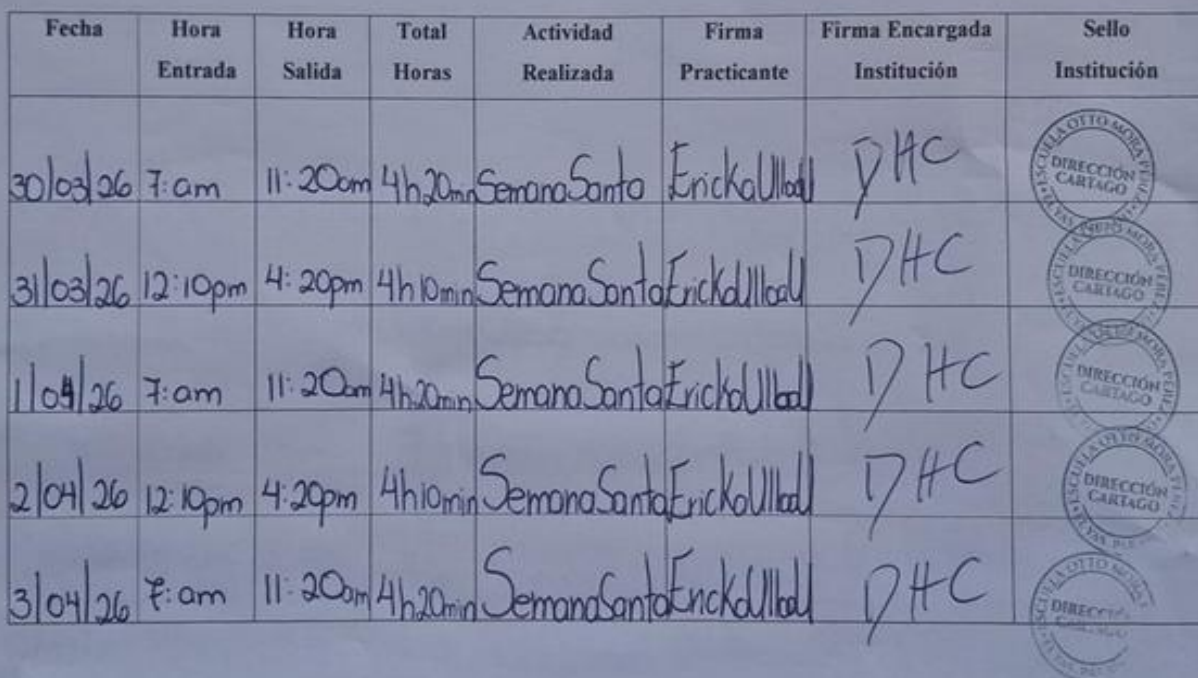 Fecha Hora Entrada Hora Salida Total Horas Actividad Realizada Firma Practicante Firma Encargada Institución Sello Institución
30/03/26 7:am 11:20am 4h20min Semana Santa Ericka UlloaU DHC ESCUELA OTTO MORA PEREZ DIRECCIÓN CARTAGO
31/03/26 12:10pm 4:20pm 4h10min Semana Santa Ericka UlloaU DHC ESCUELA OTTO MORA PEREZ DIRECCIÓN CARTAGO
1/04/26 7:am 11:20am 4h20min Semana Santa Ericka UlloaU DHC MORA PEREZ DIRECCIÓN CARTAGO
2/04/26 12:10pm 4:20pm 4h10min Semana Santa Ericka UlloaU DHC ESCUELA OTTO MORA PEREZ DIRECCIÓN CARTAGO
3/04/26 7:am 11:20am 4h20min Semana Santa Ericka UlloaU DHC OTTO MORA DIRECCIÓN